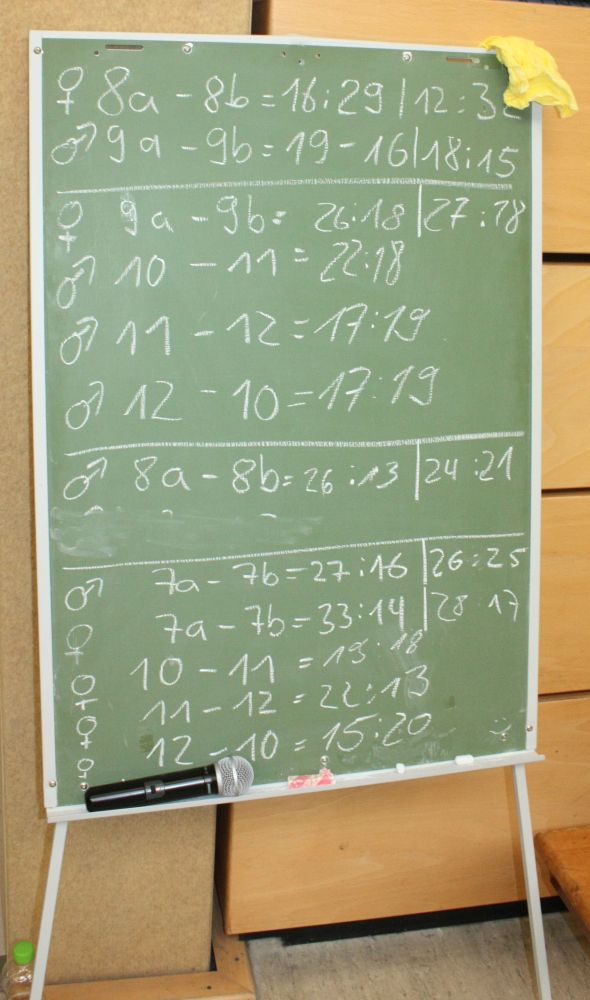 ♀ 8a - 8b = 16:29 | 12:32
♂ 9a - 9b = 19-16 | 18:15
♀ 9a - 9b = 26:18 | 27:18
♂ 10 - 11 = 22:18
♂ 11 - 12 = 17:19
♂ 12 - 10 = 17:19
♂ 8a - 8b = 26:13 | 24:21
♂ 7a - 7b = 27:16 | 26:25
♀ 7a - 7b = 33:14 | 28:17
♀ 10 - 11 = 19:18
♀ 11 - 12 = 22:13
♀ 12 - 10 = 15:20